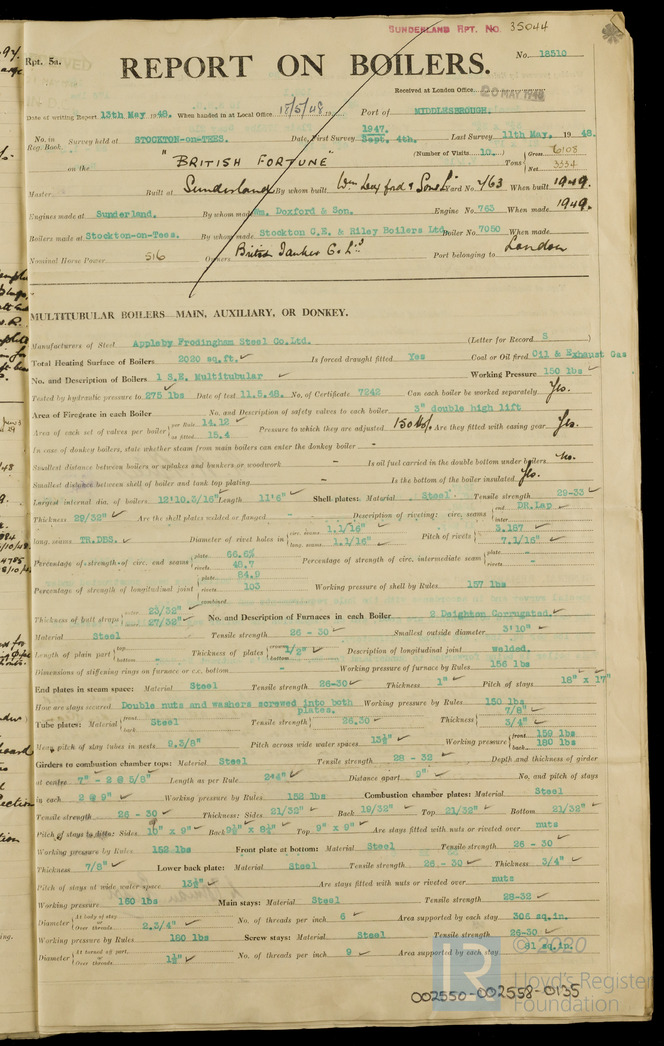 SUNDERLAND RPT. NO. 35044
Rpt. 5a.
No. 18510
REPORT ON BOILERS.
Received at London Office 20 MAY 1948
Date of writing Report 13th May 1948. When handed in at Local Office 18/5/48 19 Port of MIDDLESBROUGH.
No. in Reg. Book. Survey held at STOCKTON-on-TEES. Date, First Survey 1947. Sept. 4th. Last Survey 11th May, 1948.
on the "BRITISH FORTUNE" (Number of Visits 10.) Tons Gross 6108 Net 3334
Master Built at Sunderland By whom built Yard No. 763 When built 1949.
Engines made at Sunderland. By whom made Wm. Doxford & Son. Engine No. 763 When made 1949.
Boilers made at Stockton-on-Tees. By whom made Stockton C.E. & Riley Boilers Ltd. Boiler No. 7050 When made
Nominal Horse Power 516 Owners British Tanker Co. Ltd. Port belonging to London
MULTITUBULAR BOILERS MAIN, AUXILIARY, OR DONKEY.
Manufacturers of Steel Appleby Frodingham Steel Co.Ltd. (Letter for Record S )
Total Heating Surface of Boilers 2020 sq.ft. Is forced draught fitted Yes Coal or Oil fired Oil & Exhaust Gas
No. and Description of Boilers 1 S.E. Multitubular Working Pressure 150 lbs
Tested by hydraulic pressure to 275 lbs Date of test 11.5.48. No. of Certificate 7242 Can each boiler be worked separately Yes.
Area of Firegrate in each Boiler No. and Description of safety valves to each boiler 3" double high lift
Area of each set of valves per boiler per Rule 14.12 as fitted 15.4 Pressure to which they are adjusted 150 lbs. Are they fitted with easing gear Yes.
In case of donkey boilers, state whether steam from main boilers can enter the donkey boiler -
Smallest distance between boilers or uptakes and bunkers or woodwork - Is oil fuel carried in the double bottom under boilers No.
Smallest distance between shell of boiler and tank top plating - Is the bottom of the boiler insulated Yes.
Largest internal dia. of boilers 12'10.3/16" Length 11'6" Shell plates: Material Steel Tensile strength 29-33
Thickness 29/32" Are the shell plates welded or flanged - Description of riveting: circ. seams end DR.Lap inter. -
long. seams TR.DBS. Diameter of rivet holes in circ. seams 1.1/16" long. seams 1.1/16" Pitch of rivets 3.187 7.1/16"
Percentage of strength of circ. end seams plate 66.6% rivets 48.7 Percentage of strength of circ. intermediate seam plate - rivets -
Percentage of strength of longitudinal joint plate 84.9 rivets 103 combined Working pressure of shell by Rules 157 lbs
Thickness of butt straps outer 23/32" inner 27/32" No. and Description of Furnaces in each Boiler 2 Deighton Corrugated.
Material Steel Tensile strength 26 - 30 Smallest outside diameter 3'10"
Length of plain part top - bottom - Thickness of plates crown bottom 1/2" Description of longitudinal joint welded.
Dimensions of stiffening rings on furnace or c.c. bottom - Working pressure of furnace by Rules 156 lbs
End plates in steam space: Material Steel Tensile strength 26-30 Thickness 1" Pitch of stays 18" x 17"
How are stays secured Double nuts and washers screwed into both plates. Working pressure by Rules 150 lbs
Tube plates: Material front back Steel Tensile strength 26.30 Thickness 7/8" 3/4"
Mean pitch of stay tubes in nests 9.3/8" Pitch across wide water spaces 13½" Working pressure front 159 lbs back 180 lbs
Girders to combustion chamber tops: Material Steel Tensile strength 28 - 32 Depth and thickness of girder
at centre 7" - 2 @ 5/8" Length as per Rule Distance apart 9" No. and pitch of stays
in each 2 @ 9" Working pressure by Rules 152 lbs Combustion chamber plates: Material Steel
Tensile strength 26 - 30 Thickness: Sides 21/32" Back 19/32" Top 21/32" Bottom 21/32"
Pitch of stays to ditto: Sides 10" x 9" Back 9½" x 8½" Top 9" x 9" Are stays fitted with nuts or riveted over nuts
Working pressure by Rules 152 lbs Front plate at bottom: Material Steel Tensile strength 26 - 30
Thickness 7/8" Lower back plate: Material Steel Tensile strength 26 - 30 Thickness 3/4"
Pitch of stays at wide water space 13½" Are stays fitted with nuts or riveted over nuts
Working pressure 160 lbs Main stays: Material Steel Tensile strength 28-32
Diameter At body of stay or Over threads 2.3/4" No. of threads per inch 6 Area supported by each stay 306 sq.in.
Working pressure by Rules 180 lbs Screw stays: Material Steel Tensile strength 26-30
Diameter At turned off part or Over threads 1½" No. of threads per inch 9 Area supported by each stay 81 sq.in.
©2020
LR
Lloyd's Register
Foundation
002550-002558-0135